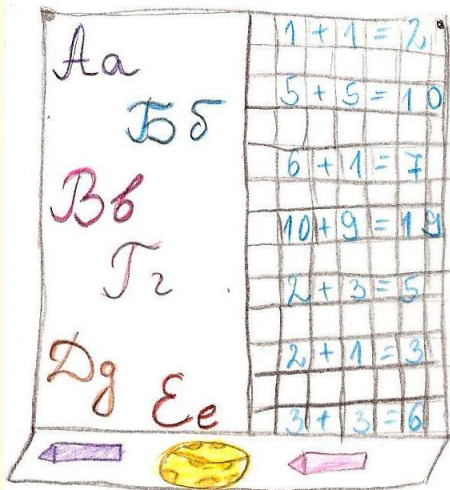 Аа
Бб
Вв
Гг
Дд
Ее
1 + 1 = 2
5 + 5 = 10
6 + 1 = 7
10 + 9 = 19
2 + 3 = 5
2 + 1 = 3
3 + 3 = 6